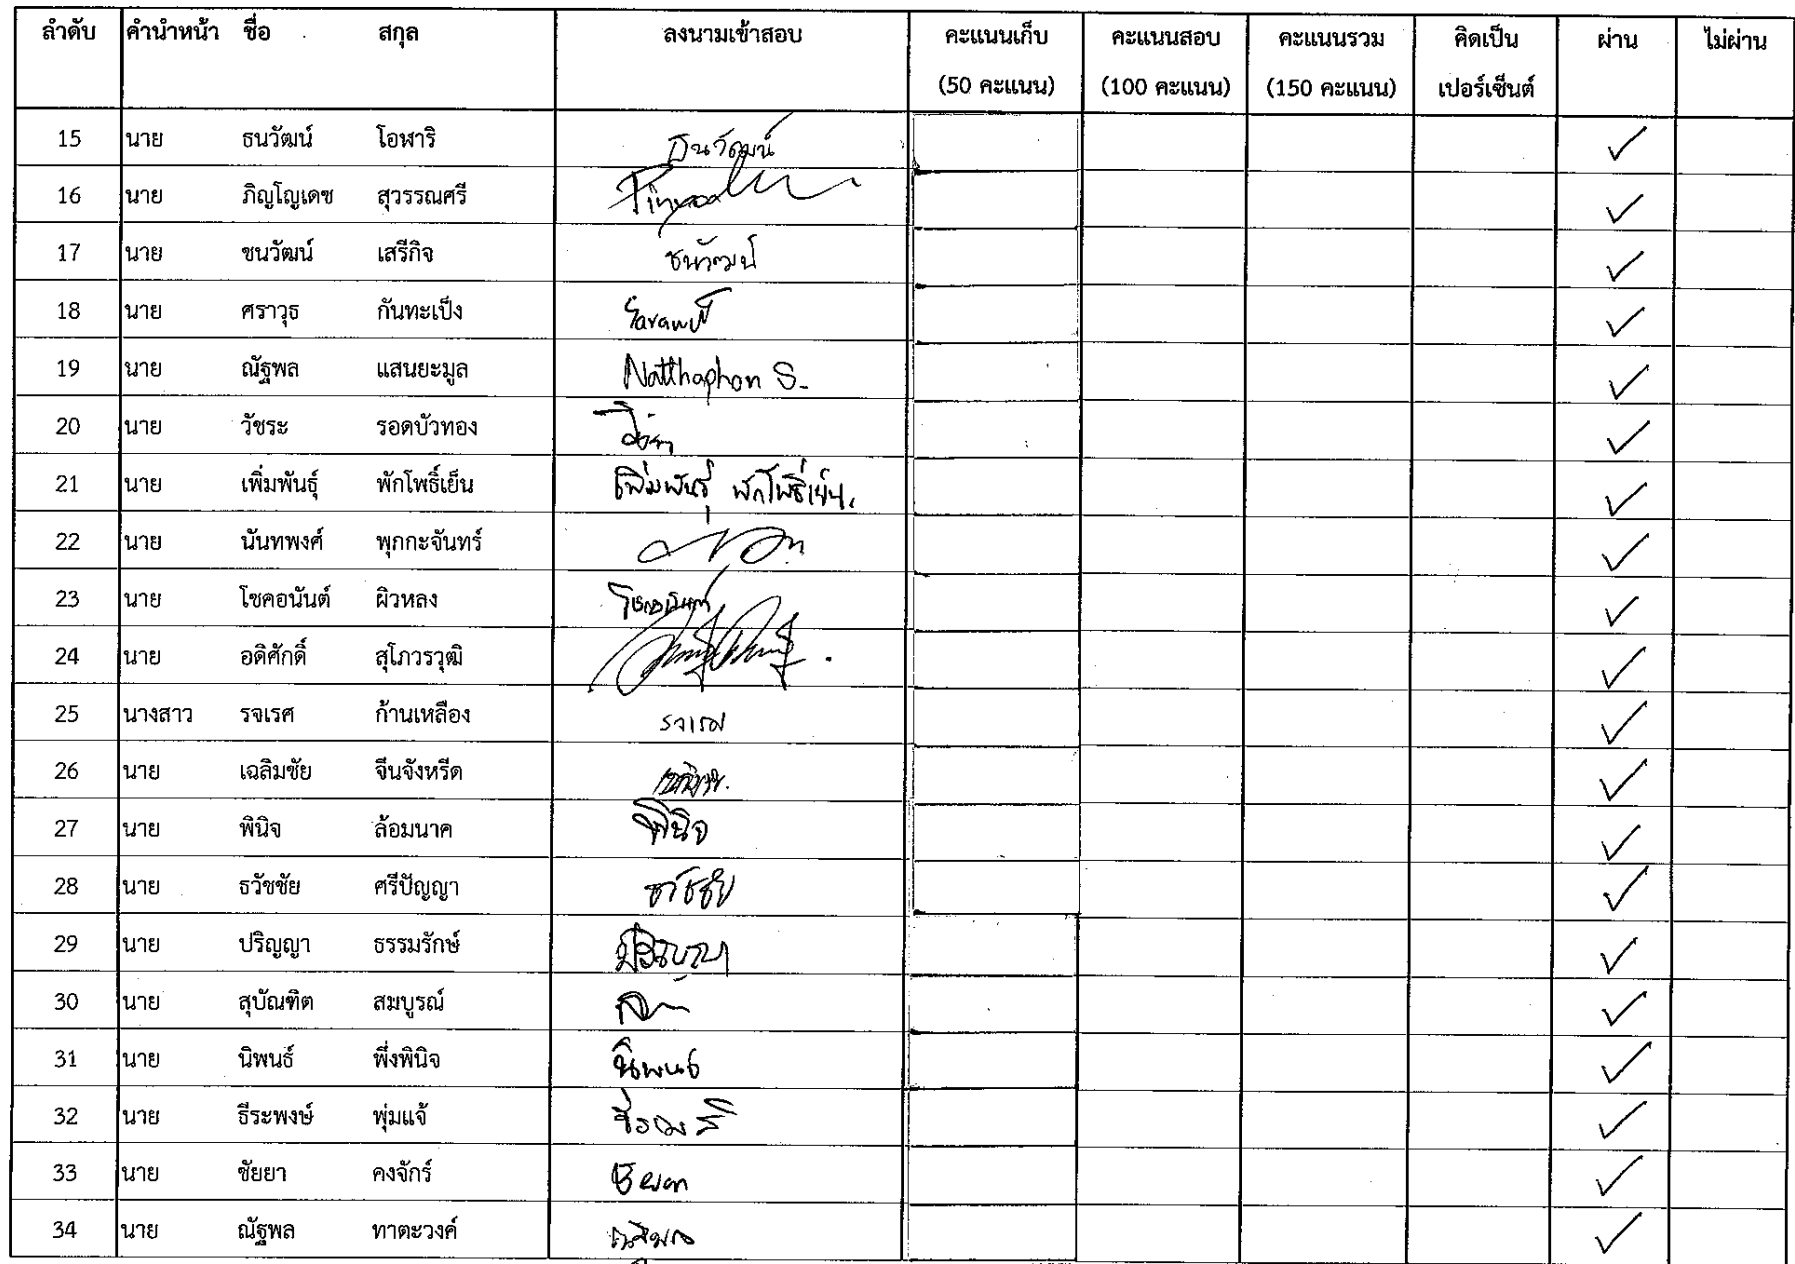 ลำดับ คำนำหน้า ชื่อ สกุล ลงนามเข้าสอบ คะแนนเก็บ คะแนนสอบ คะแนนรวม คิดเป็น ผ่าน ไม่ผ่าน
(50 คะแนน) (100 คะแนน) (150 คะแนน) เปอร์เซ็นต์
15 นาย ธนวัฒน์ โอฬาริ ธนวัฒน์ ✓
16 นาย ภิญโญเดช สุวรรณศรี ✓
17 นาย ชนวัฒน์ เสรีกิจ ชนวัฒน์ ✓
18 นาย ศราวุธ กันทะเป็ง ✓
19 นาย ณัฐพล แสนยะมูล Natthaphon S. ✓
20 นาย วัชระ รอดบัวทอง ✓
21 นาย เพิ่มพันธุ์ พักโพธิ์เย็น เพิ่มพันธุ์ พักโพธิ์เย็น. ✓
22 นาย นันทพงศ์ พุกกะจันทร์ ✓
23 นาย โชคอนันต์ ผิวหลง โชคอนันต์ ✓
24 นาย อดิศักดิ์ สุโภวรวุฒิ ✓
25 นางสาว รจเรศ ก้านเหลือง รจเรศ ✓
26 นาย เฉลิมชัย จีนจังหรีด เฉลิมชัย. ✓
27 นาย พินิจ ล้อมนาค พินิจ ✓
28 นาย ธวัชชัย ศรีปัญญา ธวัชชัย ✓
29 นาย ปริญญา ธรรมรักษ์ ปริญญา ✓
30 นาย สุบัณฑิต สมบูรณ์ ✓
31 นาย นิพนธ์ พึ่งพินิจ นิพนธ์ ✓
32 นาย ธีระพงษ์ พุ่มแจ้ ✓
33 นาย ชัยยา คงจักร์ ✓
34 นาย ณัฐพล ทาตะวงค์ ณัฐพล ✓